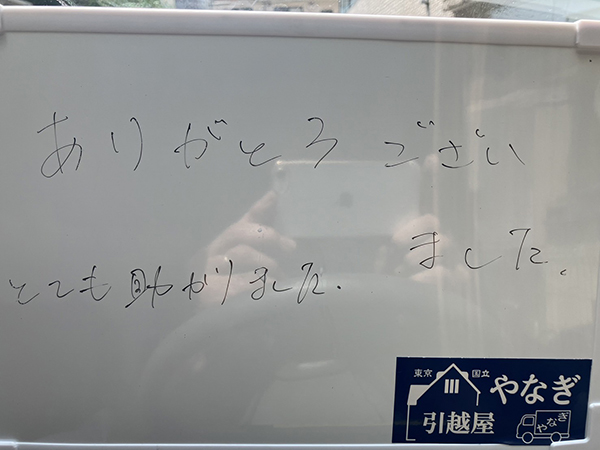 ありがとうござい
ました。
とても助かりました.
東京 国立
やなぎ
引越屋
やなぎ